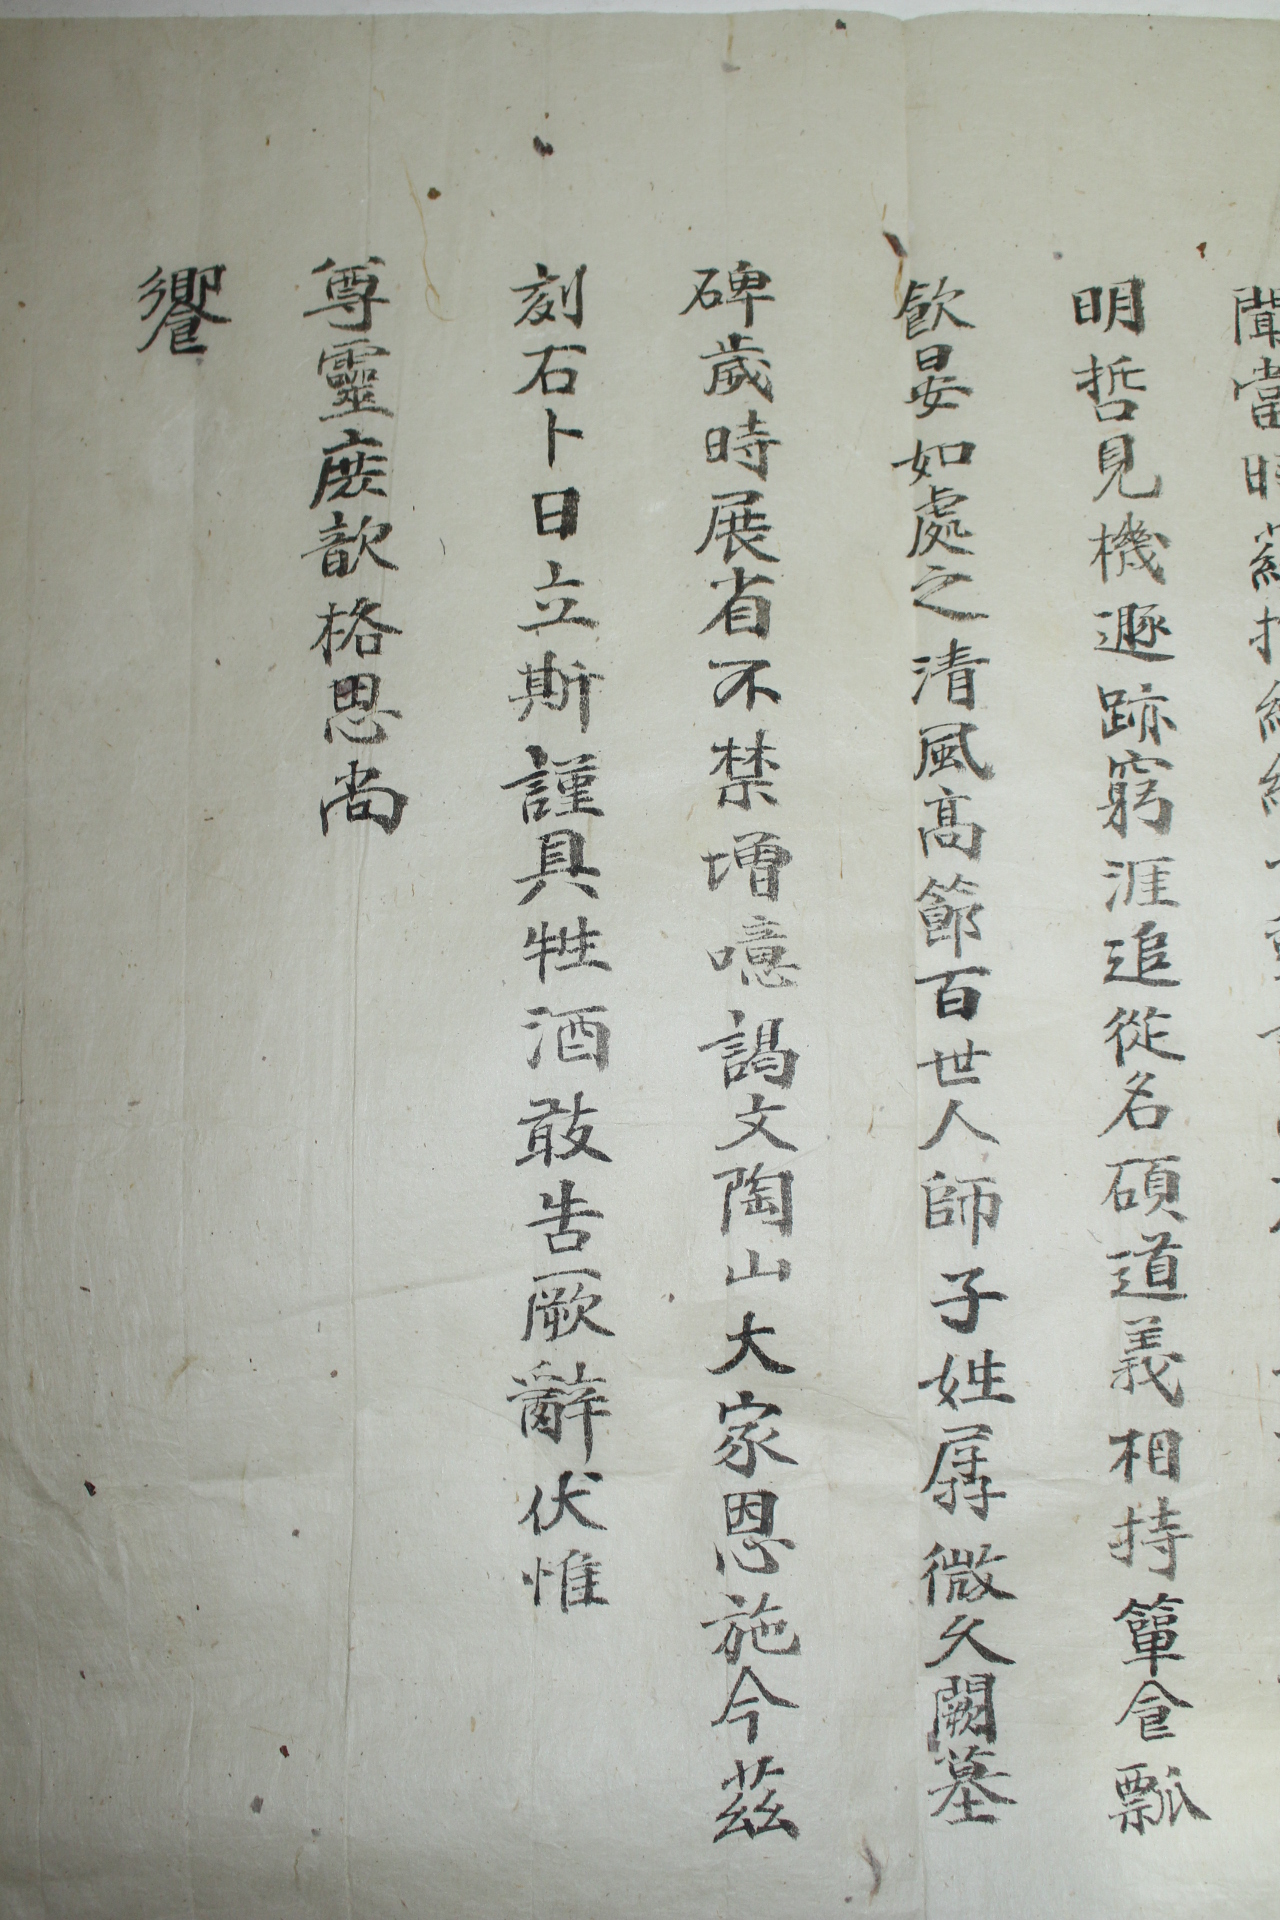 聞當時
明哲見機遯跡窮涯追從名碩道義相持簞食瓢
飮晏如處之清風高節百世人師子姓孱微久闕墓
碑歲時展省不禁增噫謁文陶山大家恩施今茲
刻石卜日立斯謹具牲酒敢告厥辭伏惟
尊靈庶歆格思尙
饗